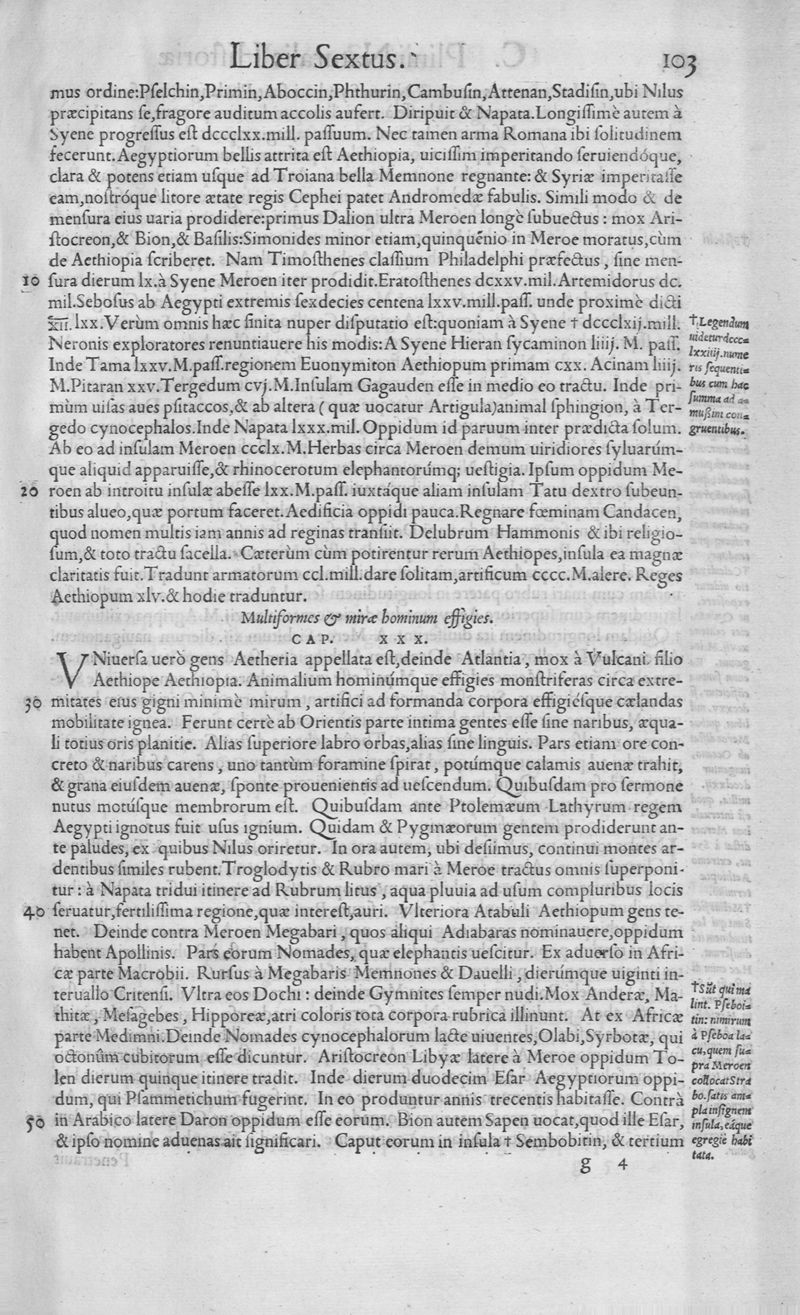 Liber Sextus. 103
mus ordine:Pſelchin,Primin,Aboccin,Phthurin,Cambuſin,Attenan,Stadiſin,ubi Nilus
præcipitans ſe,fragore auditum accolis aufert. Diripuit & Napata.Longiſſimè autem à
Syene progreſſus eſt dccclxx.mill. paſſuum. Nec tamen arma Romana ibi ſolitudinem
fecerunt.Aegyptiorum bellis attrita eſt Aethiopia, uiciſſim imperitando ſeruiendóque,
clara & potens etiam uſque ad Troiana bella Memnone regnante: & Syriæ imperitaſſe
eam,noſtróque litore ætate regis Cephei patet Andromedæ fabulis. Simili modo & de
menſura eius uaria prodidere:primus Dalion ultra Meroen longè ſubuectus : mox Ari-
ſtocreon,& Bion,& Baſilis:Simonides minor etiam,quinquénio in Meroe moratus,cùm
de Aethiopia ſcriberet. Nam Timoſthenes claſſium Philadelphi præfectus , ſine men-
10 ſura dierum lx.à Syene Meroen iter prodidit.Eratoſthenes dcxxv.mil.Artemidorus dc.
mil.Seboſus ab Aegypti extremis ſexdecies centena lxxv.mill.paſſ. unde proximè dicti
x̅i̅i̅.lxx.Verùm omnis hæc finita nuper diſputatio eſt:quoniam à Syene † dccclxij.mill.
Neronis exploratores renuntiauere his modis:A Syene Hieran ſycaminon liiij. M. paſſ.
Inde Tama lxxv.M.paſſ.regionem Euonymiton Aethiopum primam cxx. Acinam liiij.
M.Pitaran xxv.Tergedum cvj.M.Inſulam Gagauden eſſe in medio eo tractu. Inde pri-
mùm uiſas aues pſitaccos,& ab altera ( quæ uocatur Artigula)animal ſphingion, à Ter-
gedo cynocephalos.Inde Napata lxxx.mil. Oppidum id paruum inter prædicta ſolum.
Ab eo ad inſulam Meroen ccclx.M.Herbas circa Meroen demum uiridiores ſyluarúm-
que aliquid apparuiſſe,& rhinocerotum elephantorúmq; ueſtigia. Ipſum oppidum Me-
20 roen ab introitu inſulæ abeſſe lxx.M.paſſ. iuxtáque aliam inſulam Tatu dextro ſubeun-
tibus alueo,quæ portum faceret.Aedificia oppidi pauca.Regnare fœminam Candacen,
quod nomen multis iam annis ad reginas tranſiit. Delubrum Hammonis & ibi religio-
ſum,& toto tractu ſacella. Cæterùm cùm potirentur rerum Aethiopes,inſula ea magnæ
claritatis fuit.Tradunt armatorum ccl.mill.dare ſolitam,artificum cccc.M.alere. Reges
Aethiopum xlv.& hodie traduntur.
Multiformes & miræ hominum effigies.
CAP. XXX.
VNiuerſa uerò gens Aetheria appellata eſt,deinde Atlantia , mox à Vulcani filio
Aethiope Aethiopia. Animalium hominúmque effigies monſtriferas circa extre-
30 mitates eius gigni minimè mirum , artifici ad formanda corpora effigiéſque cælandas
mobilitate ignea. Ferunt certè ab Orientis parte intima gentes eſſe ſine naribus, æqua-
li totius oris planitie. Alias ſuperiore labro orbas,alias ſine linguis. Pars etiam ore con-
creto & naribus carens , uno tantùm foramine ſpirat , potúmque calamis auenæ trahit,
& grana eiuſdem auenæ, ſponte prouenientis ad ueſcendum. Quibuſdam pro ſermone
nutus motúſque membrorum eſt. Quibuſdam ante Ptolemæum Lathyrum regem
Aegypti ignotus fuit uſus ignium. Quidam & Pygmæorum gentem prodiderunt an-
te paludes, ex quibus Nilus oriretur. In ora autem, ubi deſiimus, continui montes ar-
dentibus ſimiles rubent.Troglodytis & Rubro mari à Meroe tractus omnis ſuperponi-
tur : à Napata tridui itinere ad Rubrum litus , aqua pluuia ad uſum compluribus locis
40 ſeruatur,fertiliſſima regione,quæ intereſt,auri. Vlteriora Atabuli Aethiopum gens te-
net. Deinde contra Meroen Megabari , quos aliqui Adiabaras nominauere,oppidum
habent Apollinis. Pars eorum Nomades, quæ elephantis ueſcitur. Ex aduerſo in Afri-
cæ parte Macrobii. Rurſus à Megabaris Memnones & Dauelli , dierúmque uiginti in-
teruallo Critenſi. Vltra eos Dochi : deinde Gymnites ſemper nudi.Mox Anderæ, Ma-
thitæ, Meſagebes , Hipporeæ,atri coloris tota corpora rubrica illinunt. At ex Africæ
parte Medimni.Deinde Nomades cynocephalorum lacte uiuentes,Olabi,Syrbotæ, qui
octonûm cubitorum eſſe dicuntur. Ariſtocreon Libyæ latere à Meroe oppidum To-
len dierum quinque itinere tradit. Inde dierum duodecim Eſar Aegyptiorum oppi-
dum, qui Pſammetichum fugerint. In eo produntur annis trecentis habitaſſe. Contrà
50 in Arabico latere Daron oppidum eſſe eorum. Bion autem Sapen uocat,quod ille Eſar,
& ipſo nomine aduenas ait ſignificari. Caput eorum in inſula † Sembobitin, & tertium
g 4
† Legendum
uidetur dccca
lxxiiij.nume
ris ſequenti=
bus cum hac
ſumma ad a=
mußim con=
gruentibus.
† Sūt qui ma
lint. Pſeboi=
tin: nimirum
à Pſeboa la=
cu,quem ſu=
pra Meroen
collocat Stra
bo. ſatis am=
pla inſignem
inſula, eáque
egregiè habi
tata.